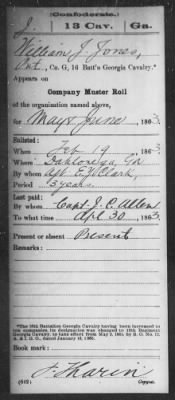 (Confederate.)
J. 13 Cav. Ga.
William J. Jones,
Pvt., Co. G, 16 Batt'n Georgia Cavalry.*
Appears on
Company Muster Roll
of the organization named above,
for May & June, 1863.
Enlisted:
When Feb 19, 1863.
Where Dahlonega, Ga
By whom E. W. Clark,
Period 3 years.
Last paid:
By whom Capt. J. C. Allen
To what time Apl 30, 1863.
Present or absent Present
Remarks:
*The 16th Battalion Georgia Cavalry having been increased to
ten companies, its designation was changed to 13th Regiment
Georgia Cavalry, to take effect from May 2, 1864, by S. O. No. 12,
A. & I. G. O., dated January 16, 1865.
Book mark:
(642) Copyist.